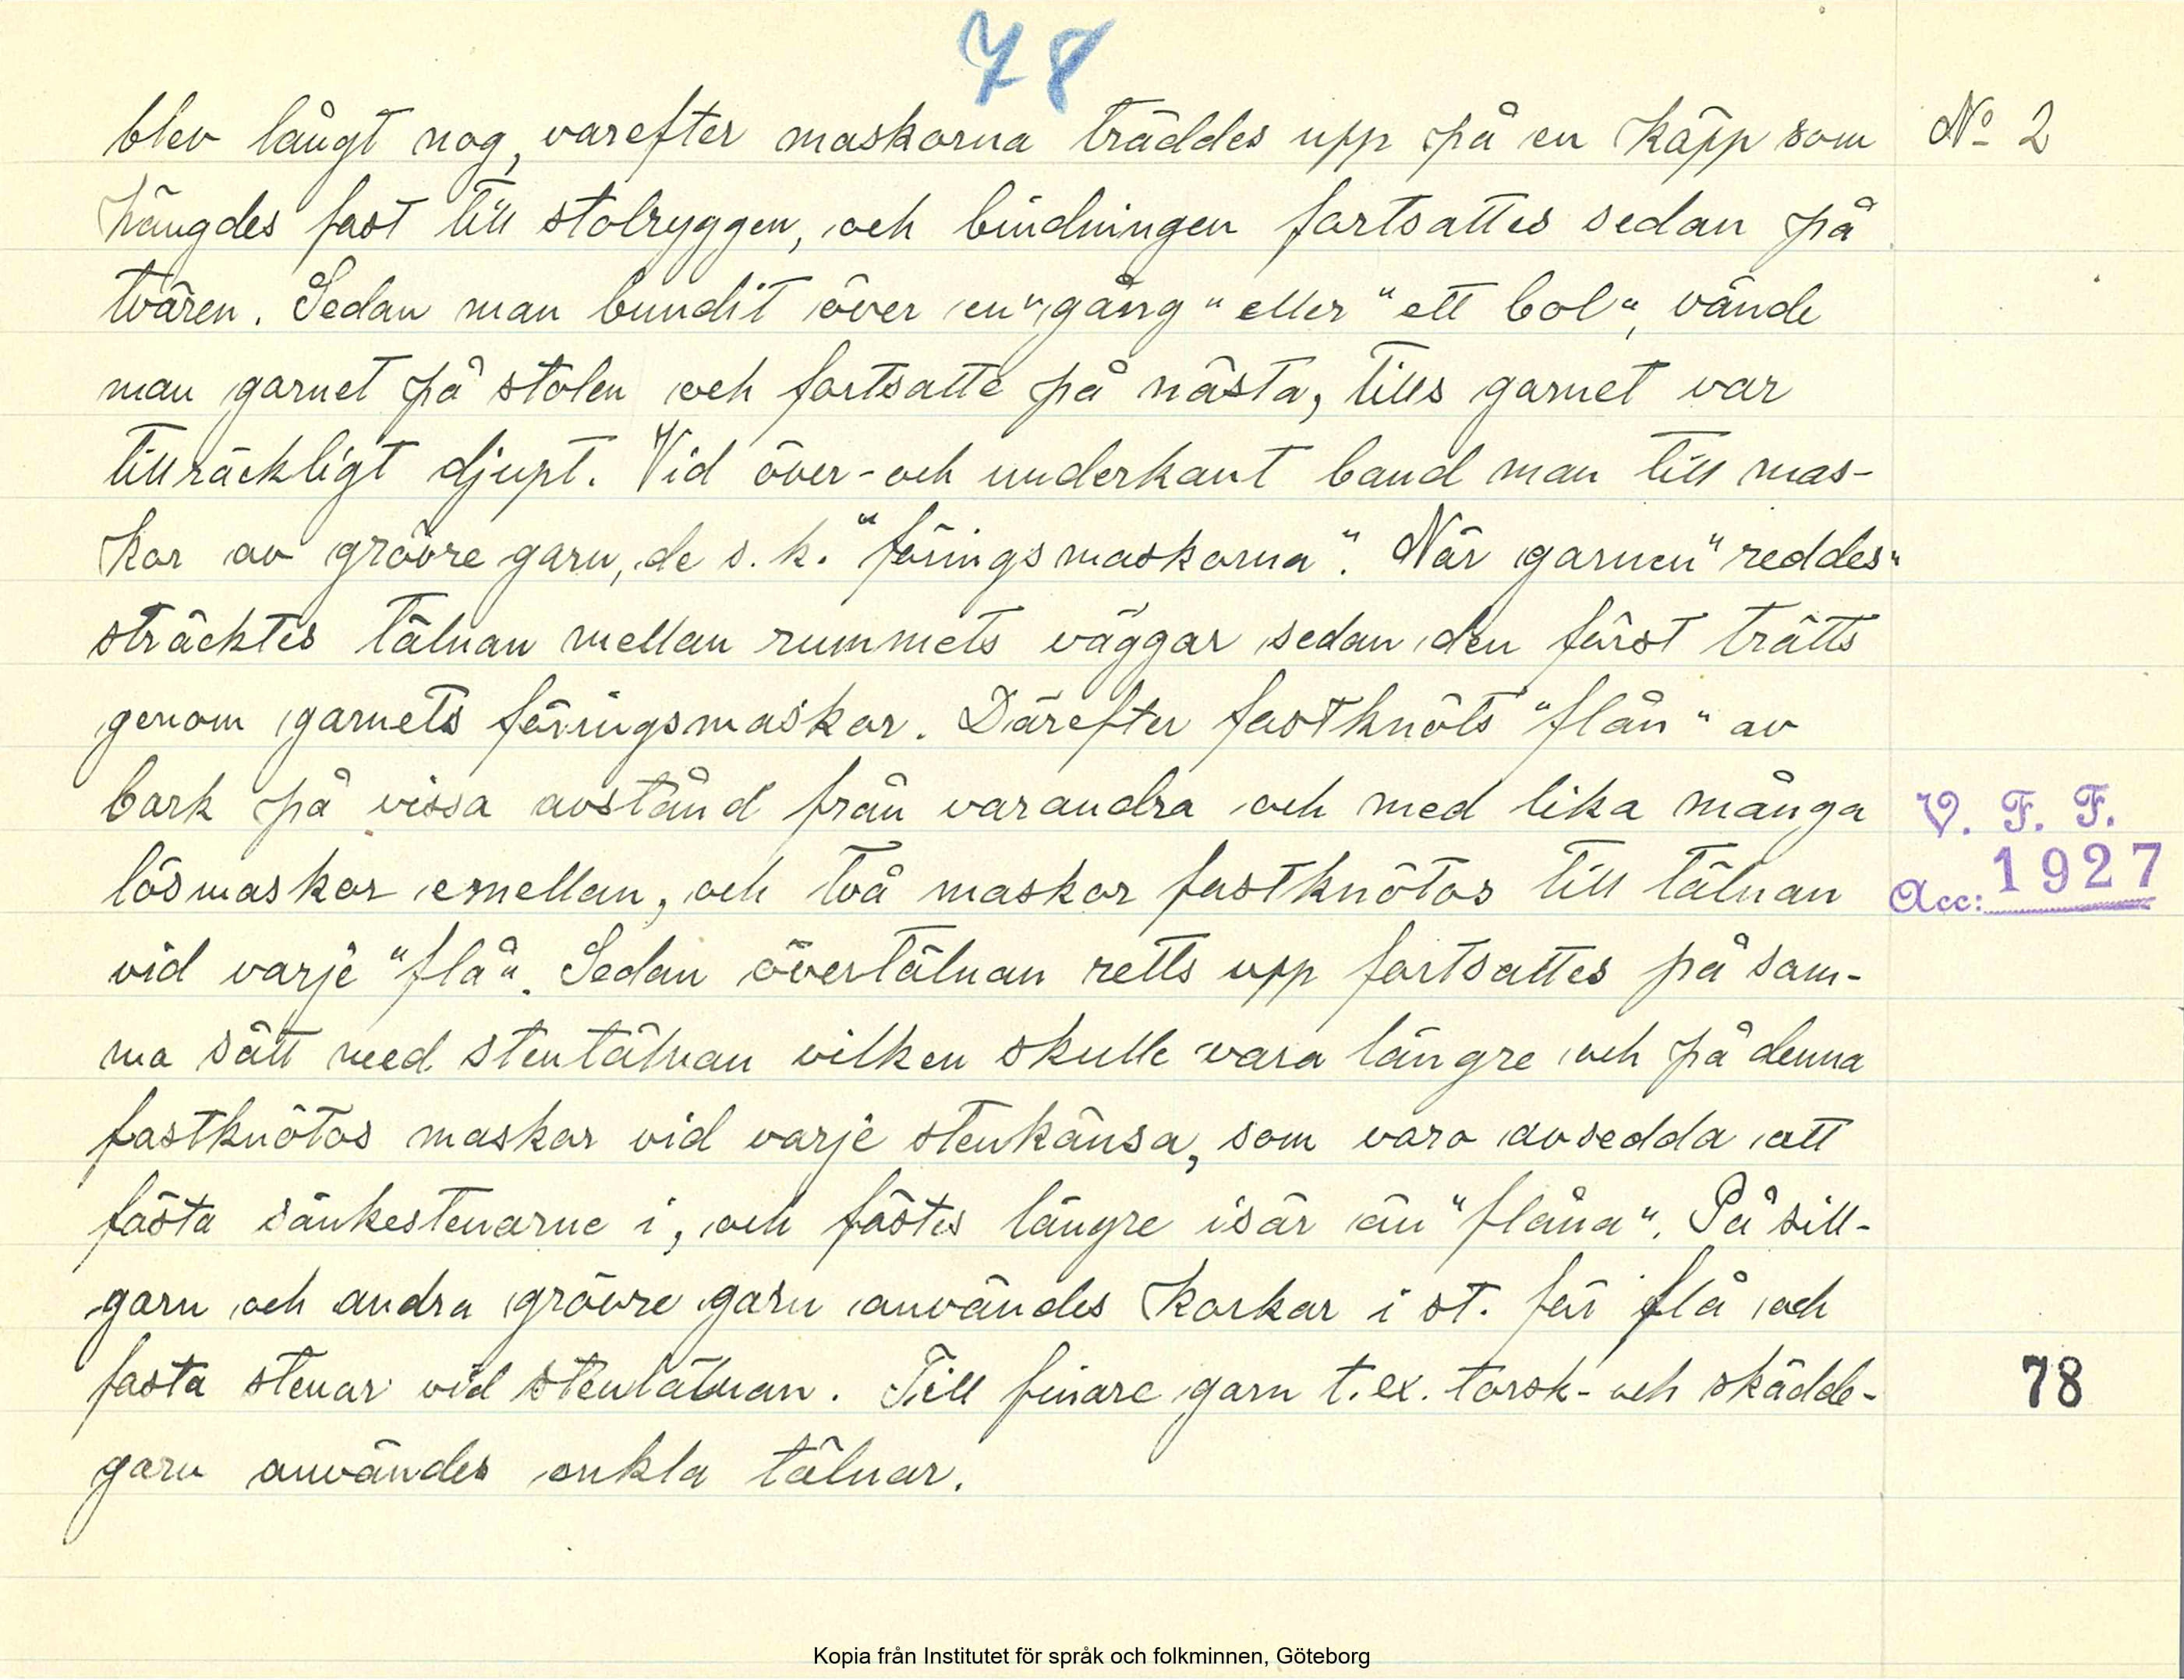 78
blev långt nog, varefter maskorna träddes upp på en käpp som
Nº 2
hängdes fast till stolryggen, och bindningen fortsattes sedan på
tvären. Sedan man bundit över en "gång" eller "ett bol", vände
man garnet på stolen och fortsatte på nästa, tills garnet var
tillräckligt djupt. Vid över- och underkant band man till mas-
kor av grövre garn, de s.k. "föringsmaskorna". När garnen "reddes"
sträcktes tälnan mellan rummets väggar sedan den först trätts
genom garnets föringsmaskor. Därefter fastknöts "flån" av
bark på vissa avstånd från varandra och med lika många
V. F. F.
lösmaskor emellan, och två maskor fastknötos till tälnan
Acc: 1927
vid varje "flå". Sedan övertälnan retts upp fortsattes på sam-
ma sätt med stentälnan vilken skulle vara längre och på denna
fastknötos maskor vid varje stenkänsa, som voro avsedda att
fästa sänkestenarne i, och fästes längre isär än "flåna". På sill-
garn och andra grövre garn användes korkar i st. för flå och
fasta stenar vid stentälnan. Till finare garn t.ex. torsk- och skädde-
78
garn användes enkla tälnar.
Kopia från Institutet för språk och folkminnen, Göteborg